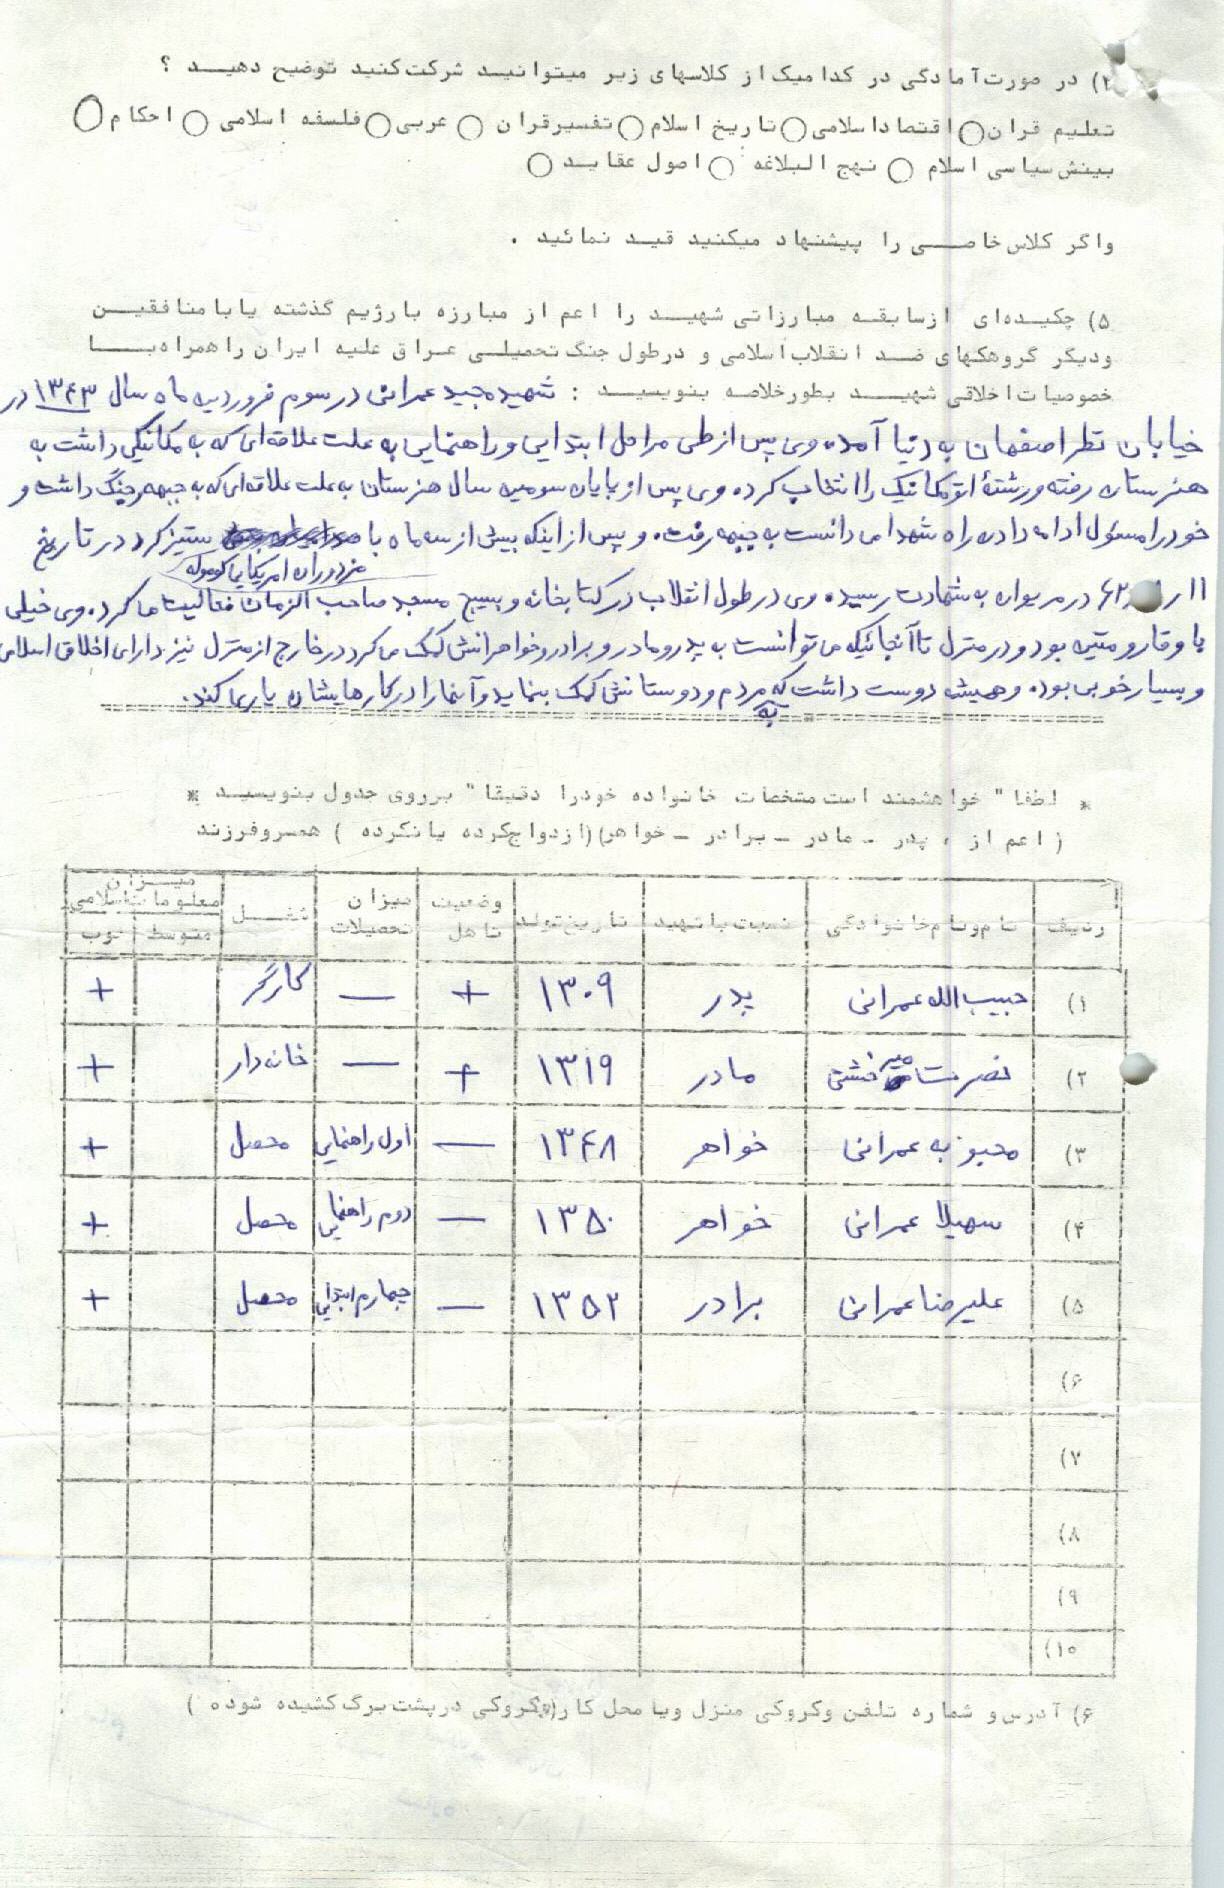 ۲) در صورت آمادگی در کدامیک از کلاسهای زیر میتوانید شرکت کنید توضیح دهید ؟
تعلیم قران ○ اقتصاد اسلامی ○ تاریخ اسلام ○ تفسیر قران ○ عربی ○ فلسفه اسلامی ○ احکام ○
بینش سیاسی اسلام ○ نهج البلاغه ○ اصول عقاید ○
واگر کلاس خاصی را پیشنهاد میکنید قید نمائید .
۵) چکیده‌ای ازسابقه مبارزاتی شهید را اعم از مبارزه بارژیم گذشته یابا منافقین
ودیگر گروهکهای ضد انقلاب اسلامی و درطول جنگ تحمیلی عراق علیه ایران را همراه با
خصوصیات اخلاقی شهید بطور خلاصه بنویسید : شهید مجید عمرانی در سوم فروردین ماه سال ۱۳۴۳ در
خیابان نظر اصفهان به دنیا آمد. وی پس از طی مراحل ابتدایی و راهنمایی به علت علاقه‌ای که به مکانیکی داشت به
هنرستان رفته و رشتهٔ اتومکانیک را انتخاب کرد. وی پس از پایان سومین سال هنرستان به علت علاقه‌ای که به جبهه و جنگ داشت و
خود را مسئول ادامه دادن راه شهدا می دانست به جبهه رفت. و پس از اینکه بیش از سه ماه با ستیز کرد در تاریخ
مزدوران امریکایی کومله
۱۱ ۶۲ در مریوان به شهادت رسید. وی در طول انقلاب در کتابخانه و بسیج مسجد صاحب الزمان فعالیت می کرد. وی خیلی
با وقار و متین بود و در منزل تا آنجائیکه می توانست به پدر و مادر و برادر و خواهرانش کمک می کرد در خارج از منزل نیز دارای اخلاق اسلامی
و بسیار خوبی بود. و همیشه دوست داشت که به مردم و دوستانش کمک بنماید و آنها را در کارهایشان یاری کند.
* لطفا" خواهشمند است مشخصات خانواده خودرا دقیقا" برروی جدول بنویسید *
( اعم از ، پدر - مادر - برادر - خواهر) (ازدواج کرده یا نکرده ) همسر و فرزند
ردیف نام ونام خانوادگی نسبت با شهید تاریخ تولد وضعیت تاهل میزان تحصیلات شغل میزان معلومات اسلامی متوسط خوب
۱) حبیب الله عمرانی پدر ۱۳۰۹ + — کارگر +
۲) نصرت خشتی مادر ۱۳۱۹ + — خانه دار +
۳) محبوبه عمرانی خواهر ۱۳۴۸ — اول راهنمایی محصل +
۴) سهیلا عمرانی خواهر ۱۳۵۰ — دوم راهنمایی محصل +
۵) علیرضا عمرانی برادر ۱۳۵۲ — چهارم ابتدایی محصل +
۶)
۷)
۸)
۹)
۱۰)
۶) آدرس و شماره تلفن وکروکی منزل ویا محل کار (کروکی درپشت برگ کشیده شوده )